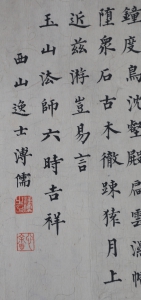 鐘度鳥沈壑殿扃雲濕
墮泉石古木徹踈猿月上
近茲游豈易言
玉山法師六時吉祥
西山逸士溥儒